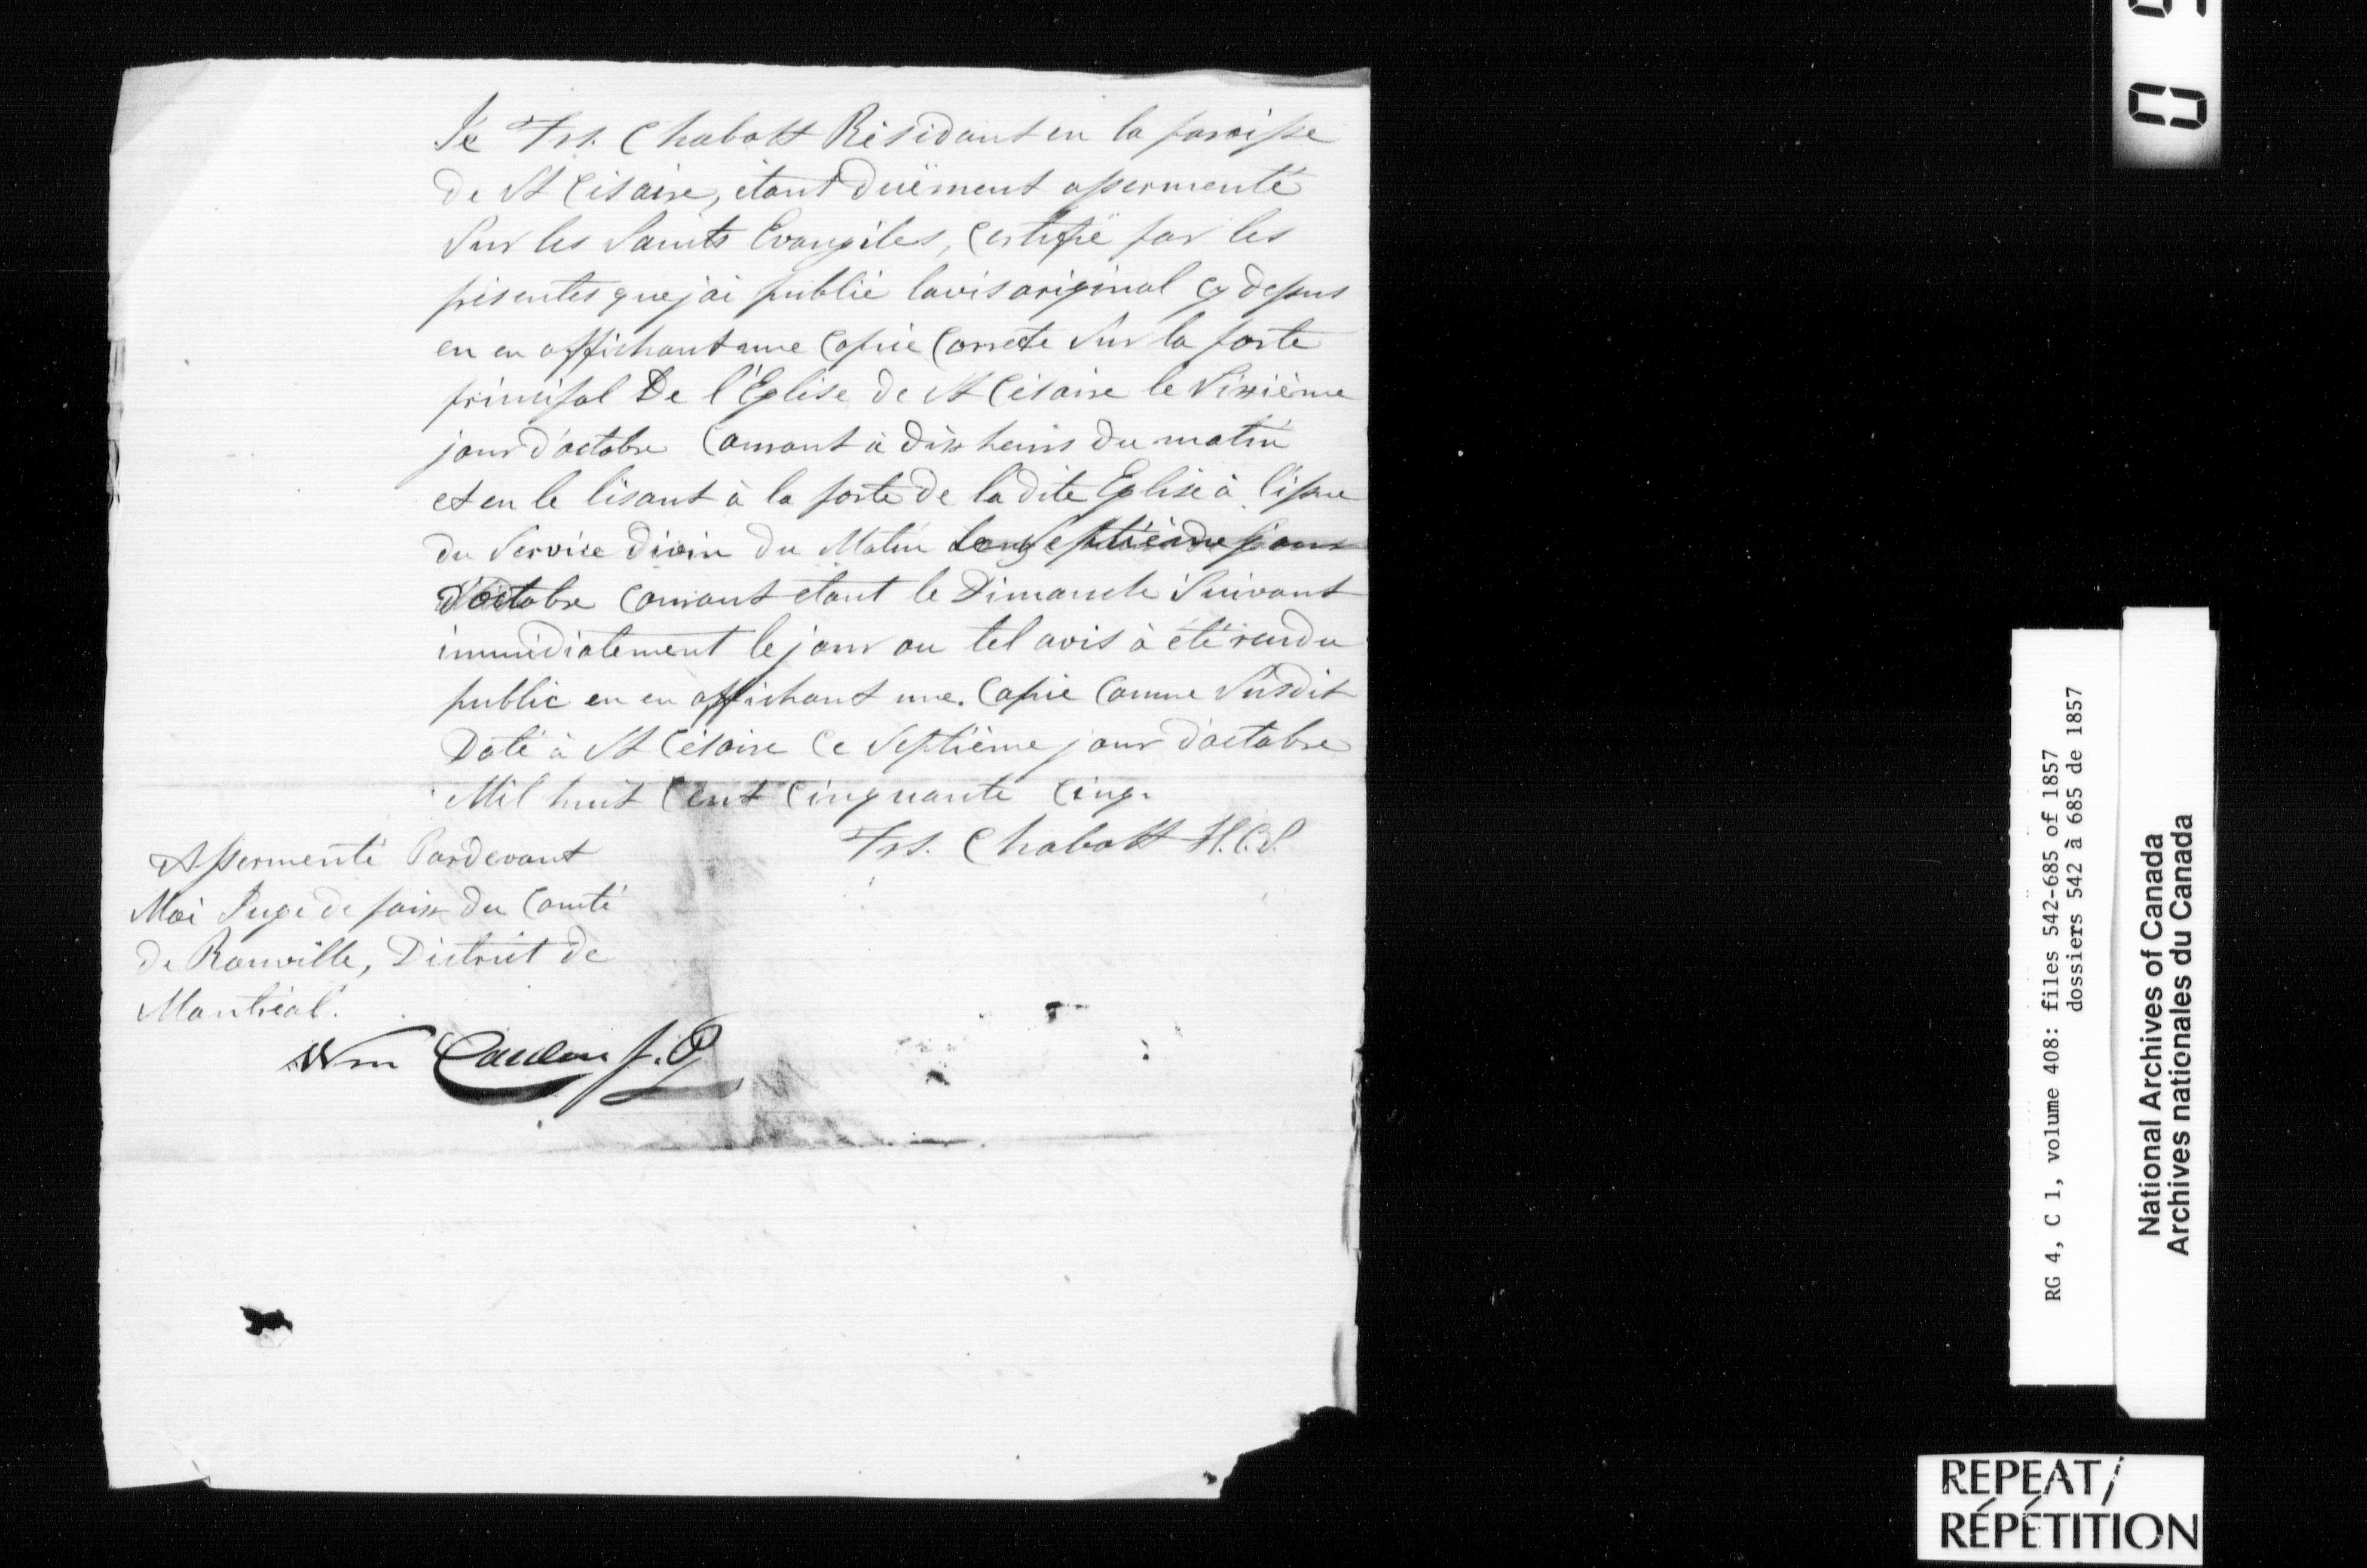 Je Frs. Chabott Résidant en la paroisse
de St Césaire, étant duëment assermenté
Sur les Saints Evangiles, Certifië par les
présentes que jai publié lavis original cy dessus
en en affichant une Copie Correcte Sur la porte
principal De l'Eglise de St Césaire le Sixième
jour d'octobre Courant à dix heurs du matin
et en le lisant à la porte de la dite Eglise à l'issue
du Service divin du Matin
d'octobre Courant etant le Dimanche Suivant
immédiatement le jour ou tel avis à été rendu
public en en affichant une. Copie Comme Susdit
Daté à St Césaire Ce Septième jour d'octobre
Mil huit Cent Cinquante Cinq.
Frs. Chabott H.C.S.
Assermenté Pardevant
Moi Juge de paix du Comté
de Rouville, District de
Montréal.
Wm J.P.
RG 4, C 1, volume 408: files 542-685 of 1857
dossiers 542 à 685 de 1857
National Archives of Canada
Archives nationales du Canada
REPEAT/
RÉPÉTITION